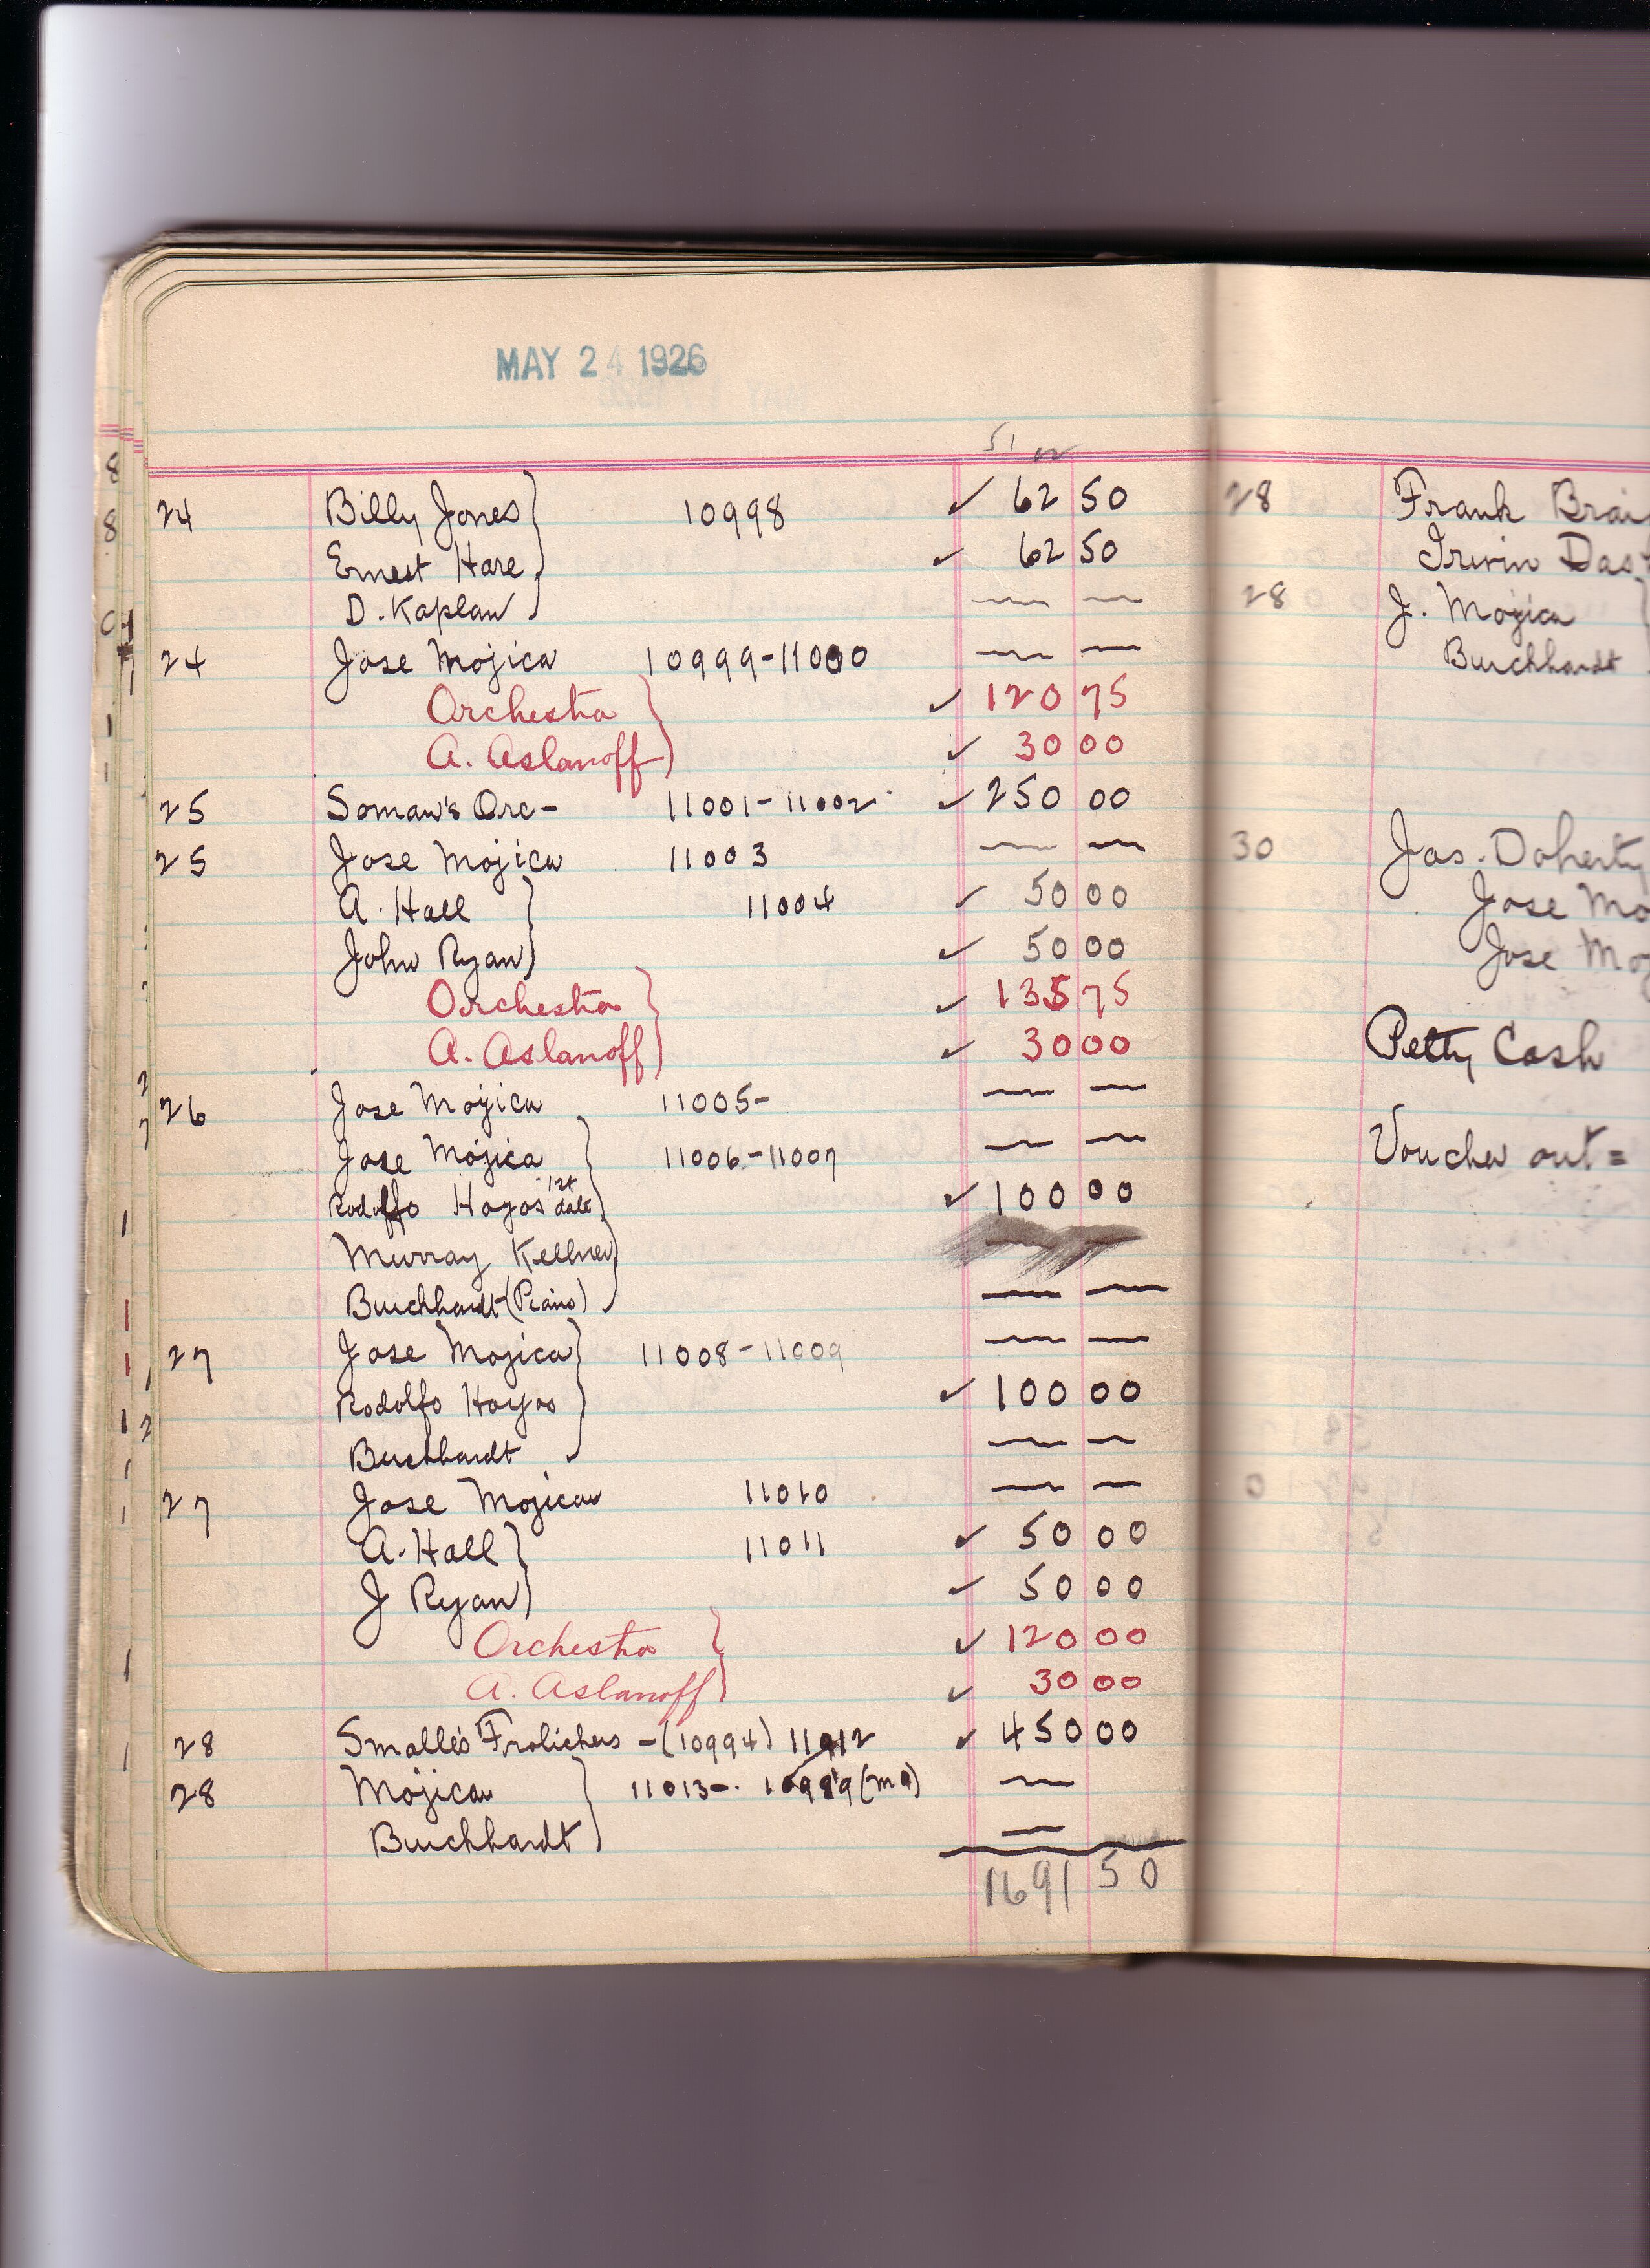 MAY 24 1926
24 Billy Jones 10998 ✓ 62 50
Ernest Hare ✓ 62 50
D. Kaplan — —
24 Jose Mojica 10999-11000 — —
Orchestra ✓ 120 75
A. Aslanoff ✓ 30 00
25 Soman's Orc- 11001-11002 ✓ 250 00
25 Jose Mojica 11003 — —
A. Hall 11004 ✓ 50 00
John Ryan ✓ 50 00
Orchestra ✓ 135 75
A. Aslanoff ✓ 30 00
26 Jose Mojica 11005- — —
Jose Mojica 11006-11007 — —
Rodolfo Hoyos 1st date ✓ 100 00
Murray Kellner —
Burchhardt (Piano) — —
27 Jose Mojica 11008-11009 — —
Rodolfo Hoyos ✓ 100 00
Burchhardt — —
27 Jose Mojica 11010 — —
A. Hall 11011 ✓ 50 00
J Ryan ✓ 50 00
Orchestra ✓ 120 00
A. Aslanoff ✓ 30 00
28 Smalle's Frolickers -(10994) 11012 ✓ 450 00
28 Mojica 11013-. —
Burchhardt —
1691 50
28 Frank Brai
Irvin Das
28 J. Mojica
Burchhardt
30 Jas. Doherty
Jose Mo
Jose Moj
Petty Cash
Voucher out =